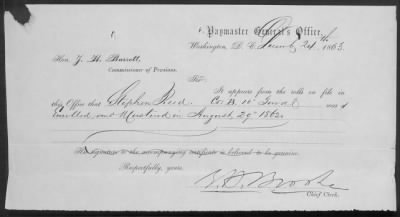 Paymaster General's Office,
Washington, D. C. 24th 1863.
Hon. J. H. Barrett,
Commissioner of Pensions.
Sir:
It appears from the rolls on file in
this Office that Stephen Reed, Co. B. 10"
Enrolled and Mustered on August 29" 1862.
His signature to the accompanying certificate is believed to be genuine.
Respectfully, yours,
Chief Clerk.